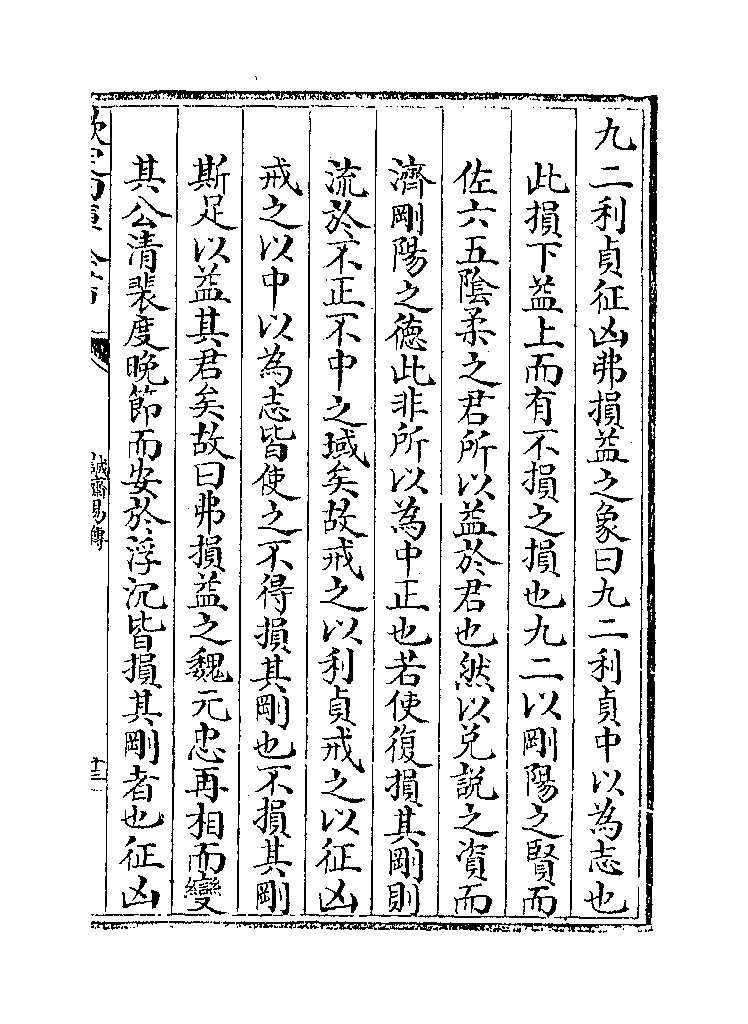 九二利貞征凶弗損益之象曰九二利貞中以為志也
此損下益上而有不損之損也九二以剛陽之賢而
佐六五陰柔之君所以益於君也然以兌說之資而
濟剛陽之德此非所以為中正也若使復損其剛則
流於不正不中之域矣故戒之以利貞戒之以征凶
戒之以中以為志皆使之不得損其剛也不損其剛
斯足以益其君矣故曰弗損益之魏元忠再相而變
其公清裴度晚節而安於浮沉皆損其剛者也征凶
誠齋易傳
十三